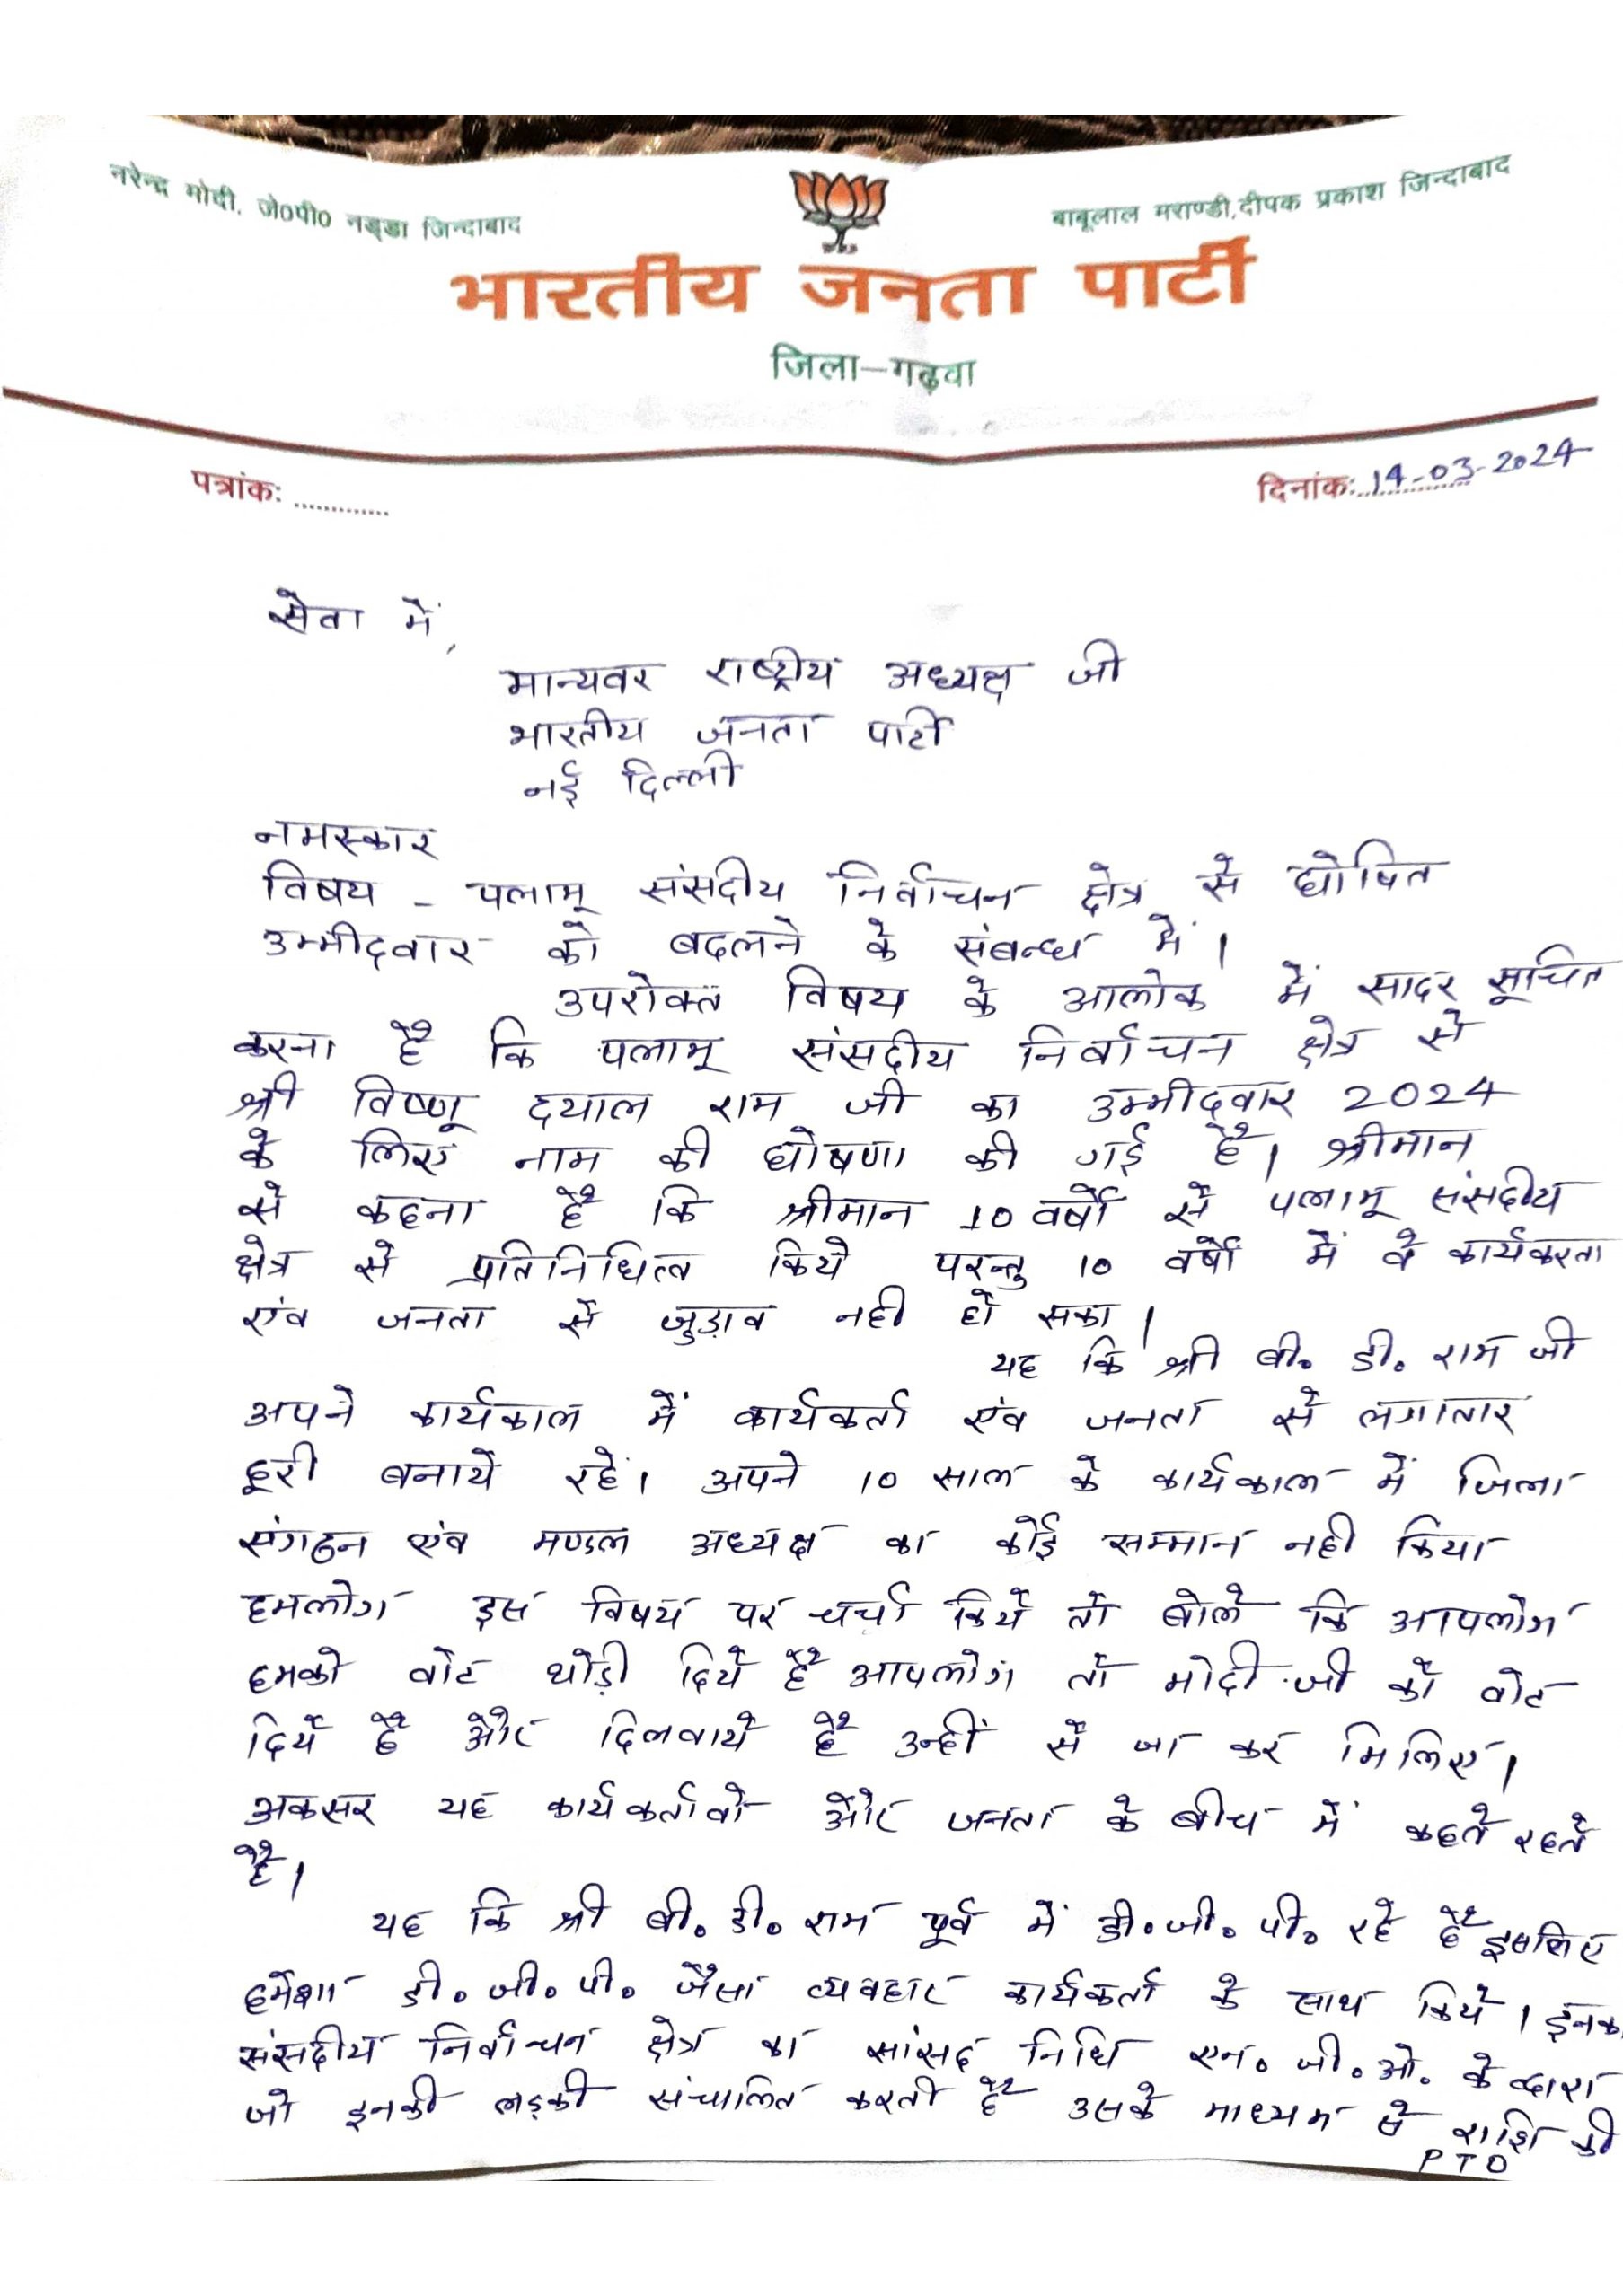 नरेन्द्र मोदी, जे0पी0 नड्डा जिन्दाबाद
बाबूलाल मराण्डी,दीपक प्रकाश जिन्दाबाद
भारतीय जनता पार्टी
जिला–गढ़वा
पत्रांक: .............
दिनांक: 14-03-2024
सेवा में,
मान्यवर राष्ट्रीय अध्यक्ष जी
भारतीय जनता पार्टी
नई दिल्ली
नमस्कार
विषय - पलामू संसदीय निर्वाचन क्षेत्र से घोषित
उम्मीदवार को बदलने के संबन्ध में।
उपरोक्त विषय के आलोक में सादर सूचित
करना है कि पलामू संसदीय निर्वाचन क्षेत्र से
श्री विष्णू दयाल राम जी का उम्मीदवार 2024
के लिए नाम की घोषणा की गई है। श्रीमान
से कहना है कि श्रीमान 10 वर्षो से पलामू संसदीय
क्षेत्र से प्रतिनिधित्व किये परन्तु 10 वर्षो में वे कार्यकरता
एंव जनता से जुड़ाव नही हो सका।
यह कि श्री बी. डी. राम जी
अपने कार्यकाल में कार्यकर्ता एंव जनता से लगातार
दूरी बनाये रहें। अपने 10 साल के कार्यकाल में जिला
संगठन एंव मण्डल अध्यक्ष का कोई सम्मान नही किया
हमलोग इस विषय पर चर्चा किये तो बोले कि आपलोग
हमको वोट थोड़ी दिये है आपलोग तो मोदी जी को वोट
दिये है और दिलवाये है उन्हीं से जा कर मिलिए।
अकसर यह कार्यकर्तावो और जनता के बीच में कहते रहते
है।
यह कि श्री बी. डी. राम पूर्व में डी. जी. पी. रहे है इसलिए
हमेशा डी. जी. पी. जैसा व्यवहार कार्यकर्ता के साथ किये। इनका
संसदीय निर्वाचन क्षेत्र का सांसद निधि एन. जी. ओ. के द्वारा
जो इनकी लड़की संचालित करती है उसके माध्यम से राशि की
PTO